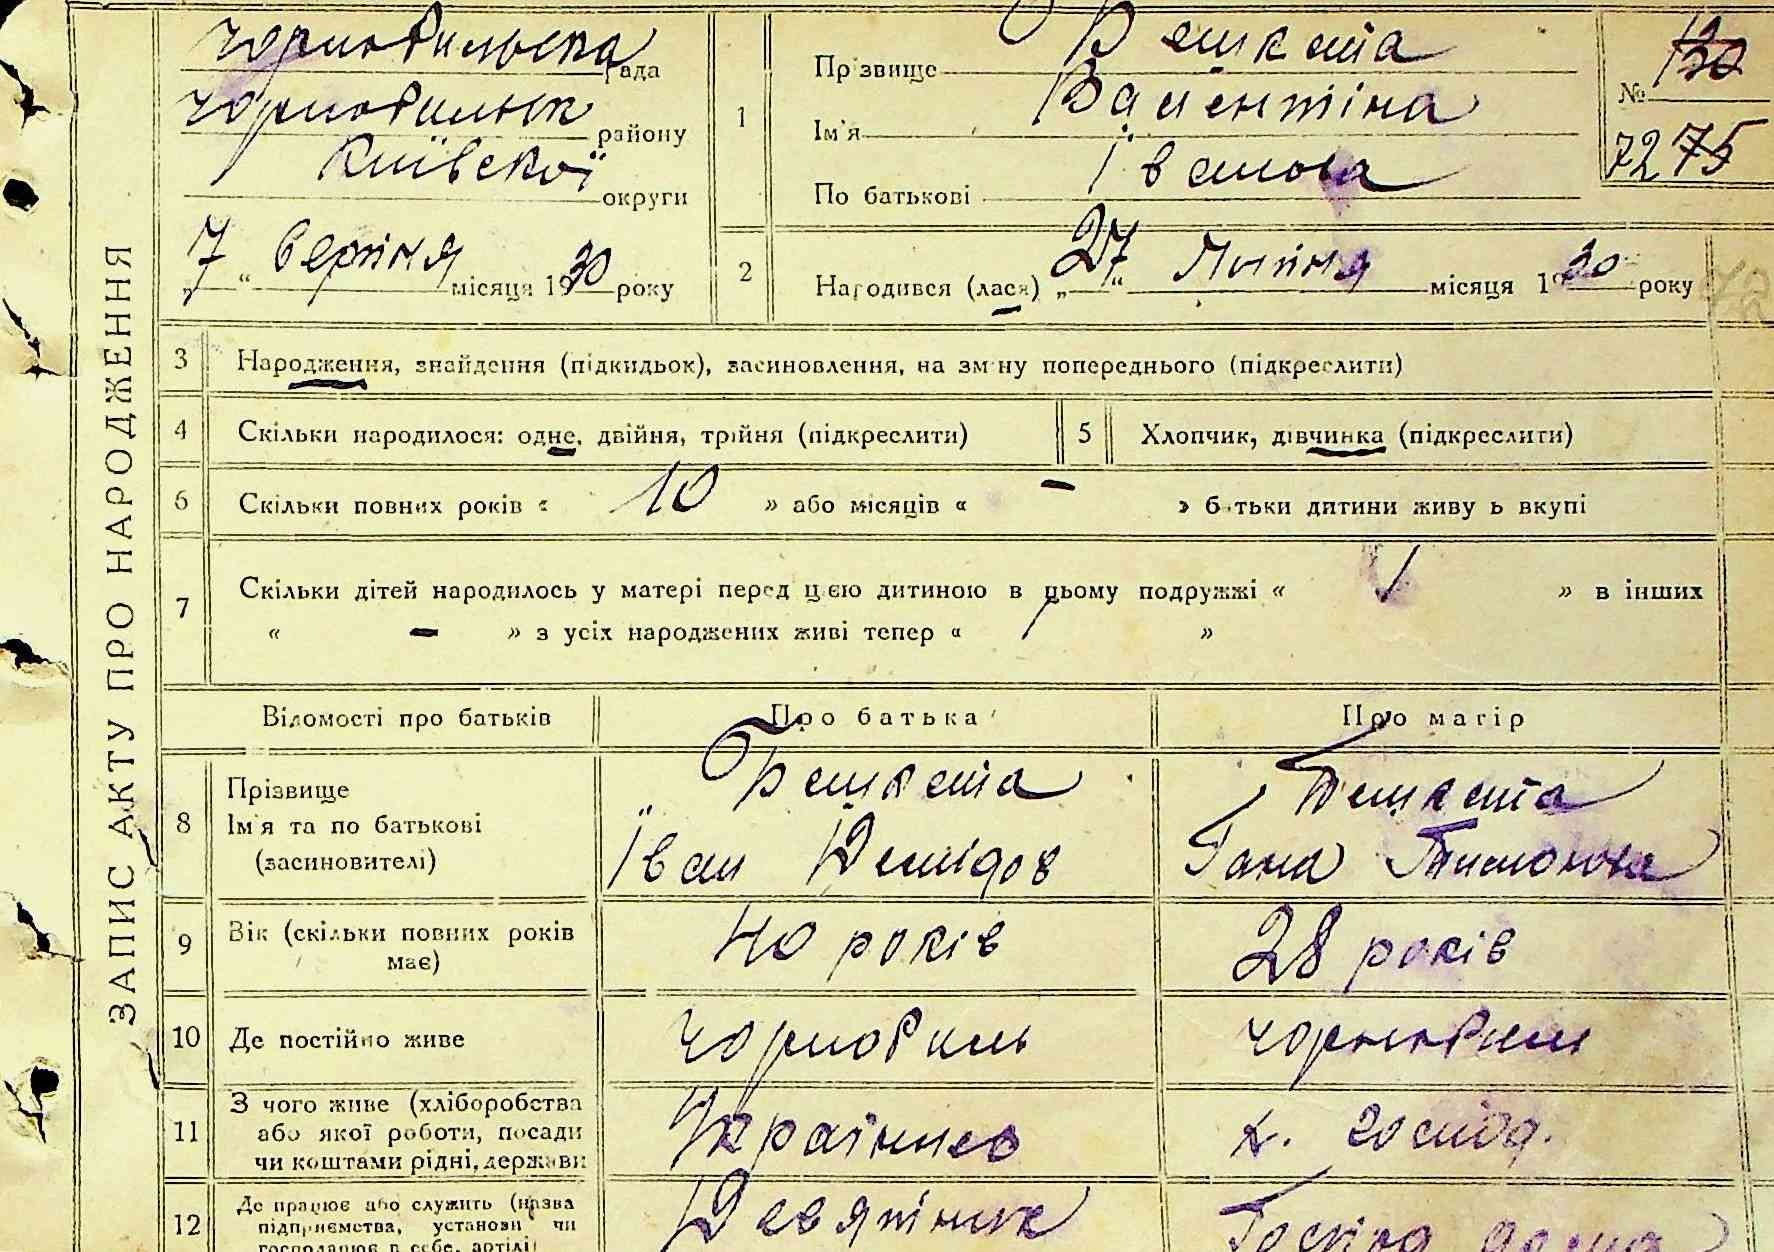 ЗАПИС АКТУ ПРО НАРОДЖЕННЯ
Чорнобильска рада
Чорнобильск району
Київскої округи
„7“ Серпня місяця 1930 року
1
Прізвище
Ім'я Валентіна
По батькові Іванова
№ 130
72 75
2 Народився (лася) „27“ Липня місяця 1930 року
72
3 Народження, знайдення (підкидьок), засиновлення, на зміну попереднього (підкреслити)
4 Скільки народилося: одне, двійня, трійня (підкреслити)
5 Хлопчик, дівчинка (підкреслити)
6 Скільки повних років « 10 » або місяців « — » батьки дитини живуть вкупі
7 Скільки дітей народилось у матері перед цією дитиною в цьому подружжі « 1 » в інших
« — » з усіх народжених живі тепер « 1 »
Відомості про батьків Про батька Про матір
8 Прізвище
Ім'я та по батькові
(засиновителі)
Іван Демідов
Гана
9 Вік (скільки повних років має) 40 років 28 років
10 Де постійно живе Чорнобиль Чорнобиль
11 З чого живе (хліборобства
або якої роботи, посади
чи коштами рідні, держави
к. господ.
12 Де працює або служить (назва
підприємства, установи чи
господарює в себе, артілі